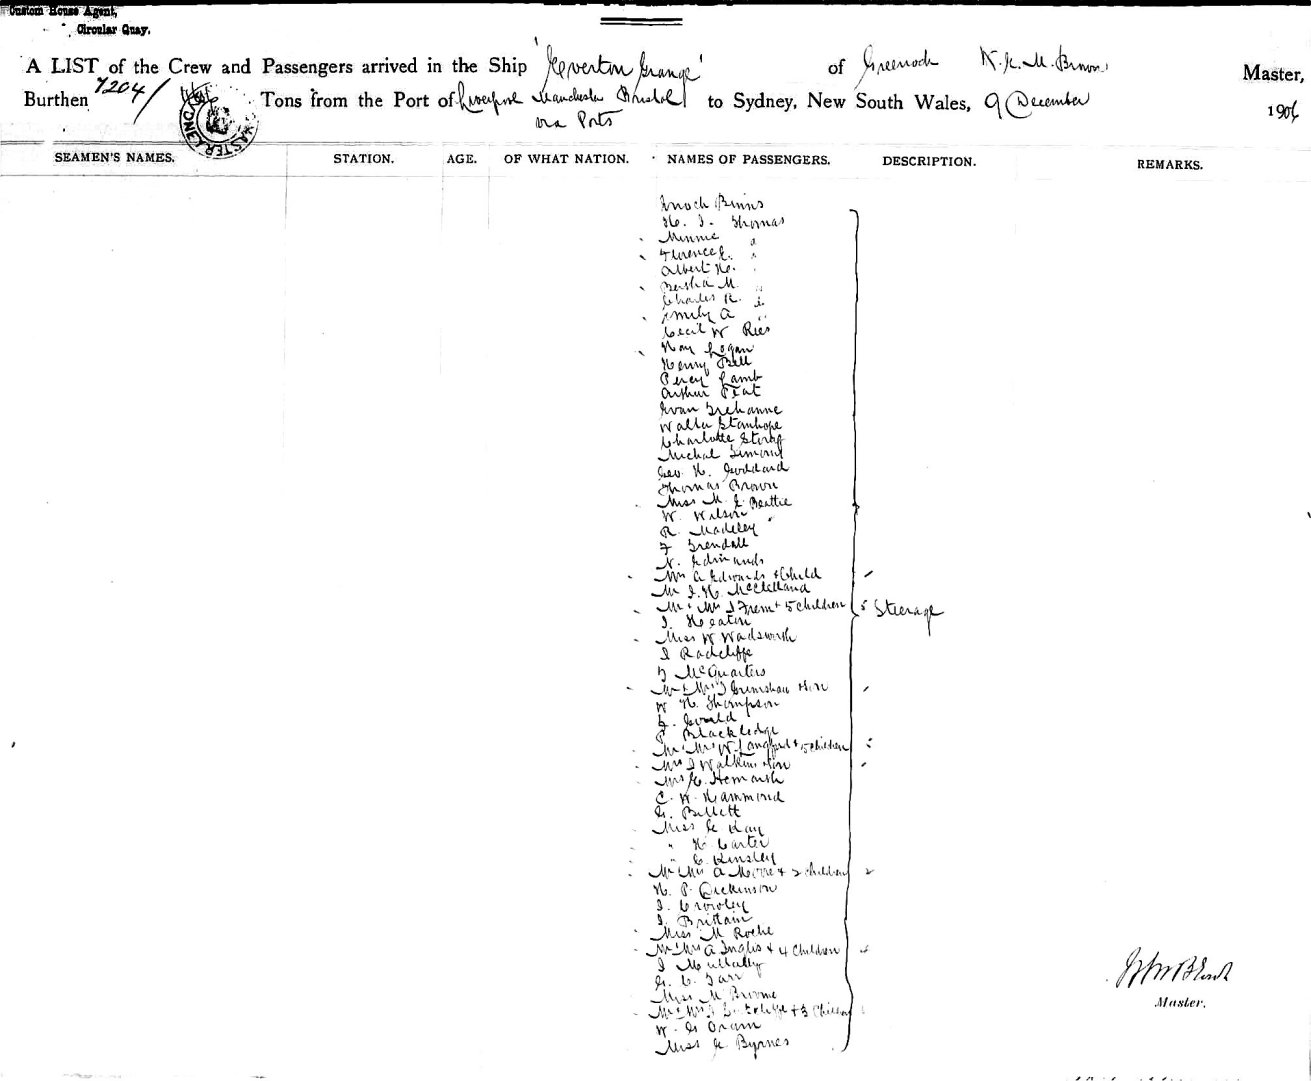 Custom House Agent,
Circular Quay.
A LIST of the Crew and Passengers arrived in the Ship 'Everton Grange' of Greenock Master,
Burthen 7204/ Tons from the Port of Liverpool Manchester Bristol to Sydney, New South Wales, 9 December 1906
via Ports
SEAMEN'S NAMES. STATION. AGE. OF WHAT NATION. NAMES OF PASSENGERS. DESCRIPTION. REMARKS.
Enoch Binns
H. J. Thomas
Minnie "
Florence E. "
Albert H. "
Bertha M. "
Charles R. "
Emily A "
Cecil W Ries
May Logan
Henry Bell
Percy Lamb
Arthur Peat
Evan Trehanne
Walter Stanhope
Charlotte
Michal Simond
Geo. H. Goddard
Thomas Brown
Miss M. E. Beattie
W. Wilson
R. Madeley
F Grendall
N. Edmunds
Mrs A Edwards & Child
Mr J. H. McClelland
Mr & Mrs J Frem & 5 children 5 Steerage
J. Heaton
Miss W Wadsworth
J Radcliffe
McQuarters
Mr & Mrs J Grimshaw & Son
W H. Thompson
Gould
P Blackledge
Mr & Mrs W. Langford & 5 children
Mrs J Watkins & Son
Mrs E.
C. W. Hammond
G. Billett
Miss E Kay
" H. Carter
" C. Kinsley
Mr & Mrs A Moore & 2 children 2
H. P. Dickinson
J. Crowley
J. Brittain
Miss M Roche
Mr & Mrs A Inglis & 4 children 4
J Mullally
G. C. Farr
Miss M Broome
Mr & Mrs J Sutcliffe & 3 Children
W. G Oram
Miss E Byrnes
Master.